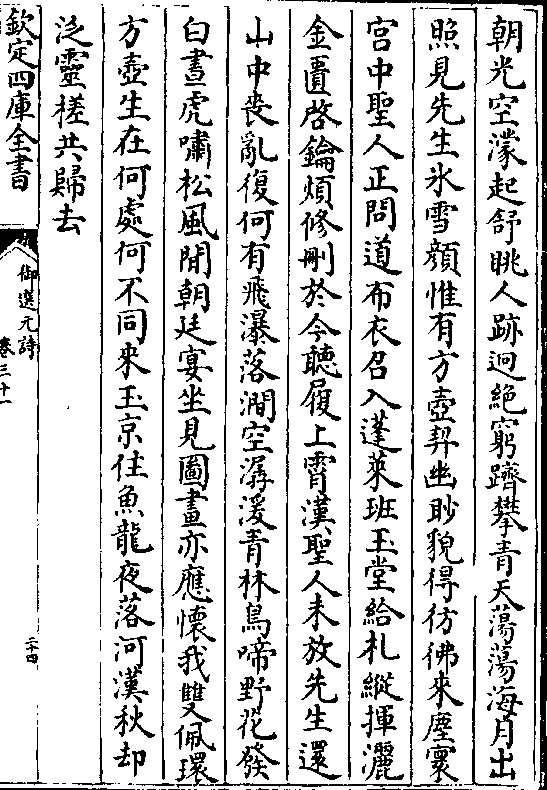 朝光空濛起舒眺人跡迥絶窮躋攀青天蕩蕩海月出
照見先生氷雪顔惟有方壺契幽眇貌得彷彿來塵寰
宫中聖人正問道布衣召入蓬萊班玉堂給札縱揮灑
金匱啓鑰煩修刪於今聽履上霄漢聖人未放先生還
山中喪亂復何有飛瀑落澗空潺湲青林鳥啼野花發
白晝虎嘯松風閒朝廷宴坐見圖畫亦應懷我雙佩環
方壺生在何處何不同來玉京住魚龍夜落河漢秋却
泛靈槎共歸去
欽定四庫全書
御選元詩
卷三十一
二十四